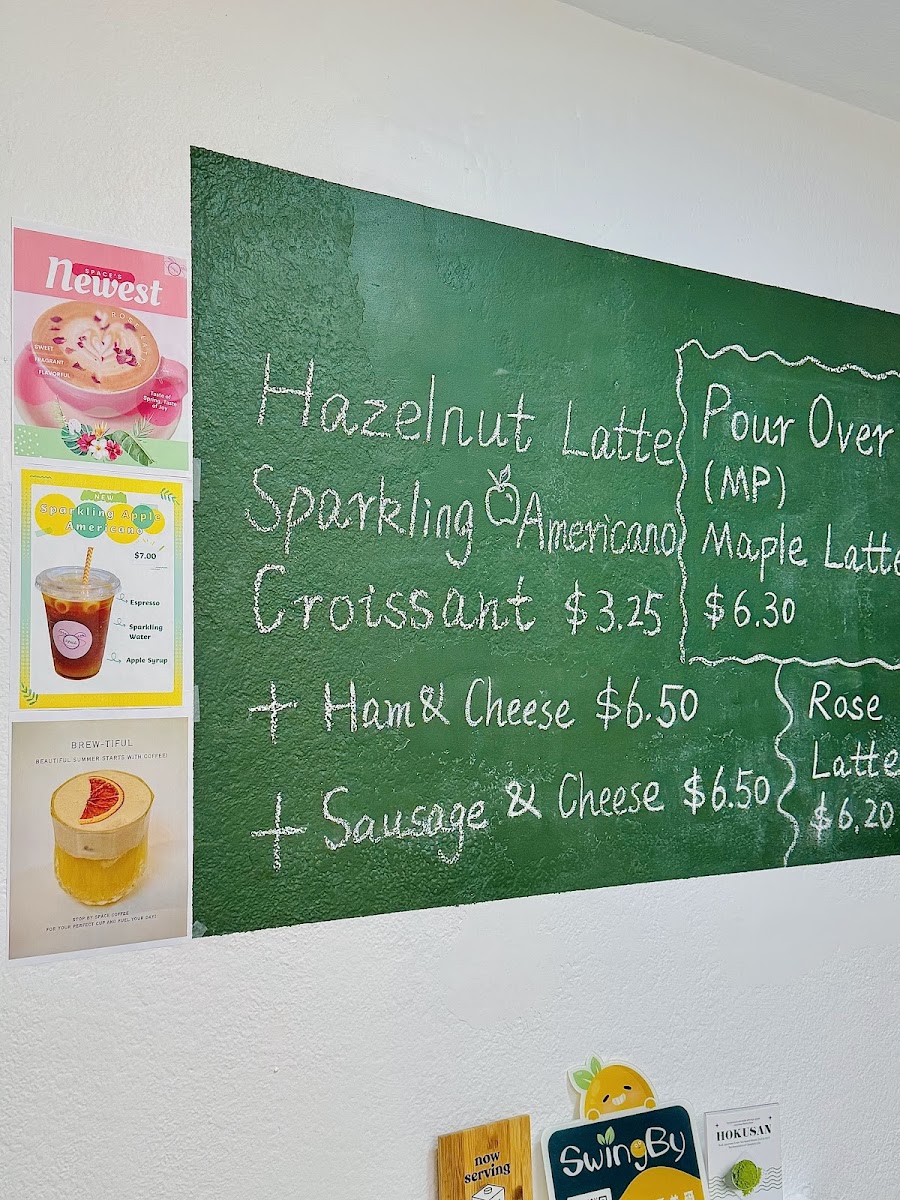 SPACE'S
Newest
ROSE LATTE
SWEET
FRAGRANT
FLAVORFUL
Taste of
Spring, Taste
of Joy
NEW
Sparkling Apple
Americano
$7.00
Espresso
Sparkling
Water
Apple Syrup
BREW-TIFUL
BEAUTIFUL SUMMER STARTS WITH COFFEE!
STOP BY SPACE COFFEE
FOR YOUR PERFECT CUP AND FUEL YOUR DAY!
Hazelnut Latte
Sparkling Americano
Croissant $3.25
+ Ham & Cheese $6.50
+ Sausage & Cheese $6.50
Pour Over
(MP)
Maple Latte
$6.30
Rose
Latte
$6.20
now
serving
SwingBy
HOKUSAN